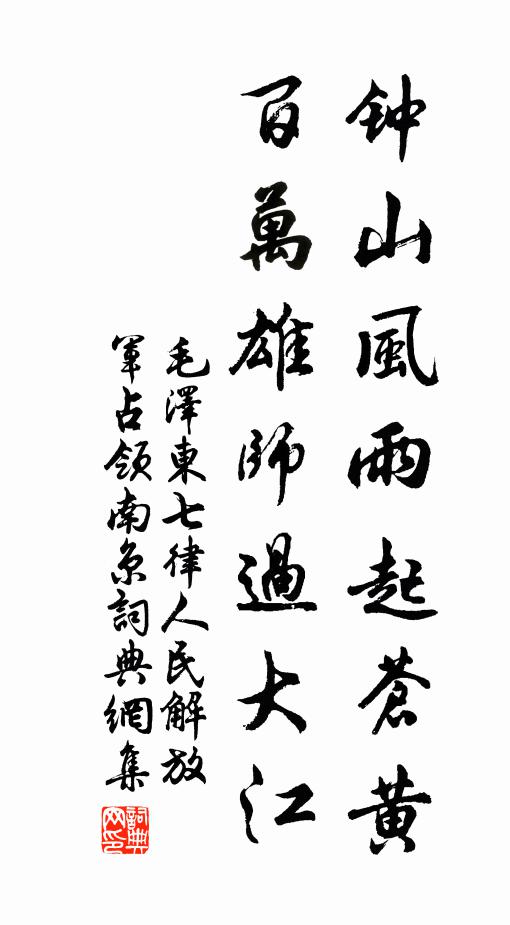 钟山風雨起蒼黄
百萬雄師過大江
毛澤東七律人民解放
軍占領南京詞典網集
詞典网印